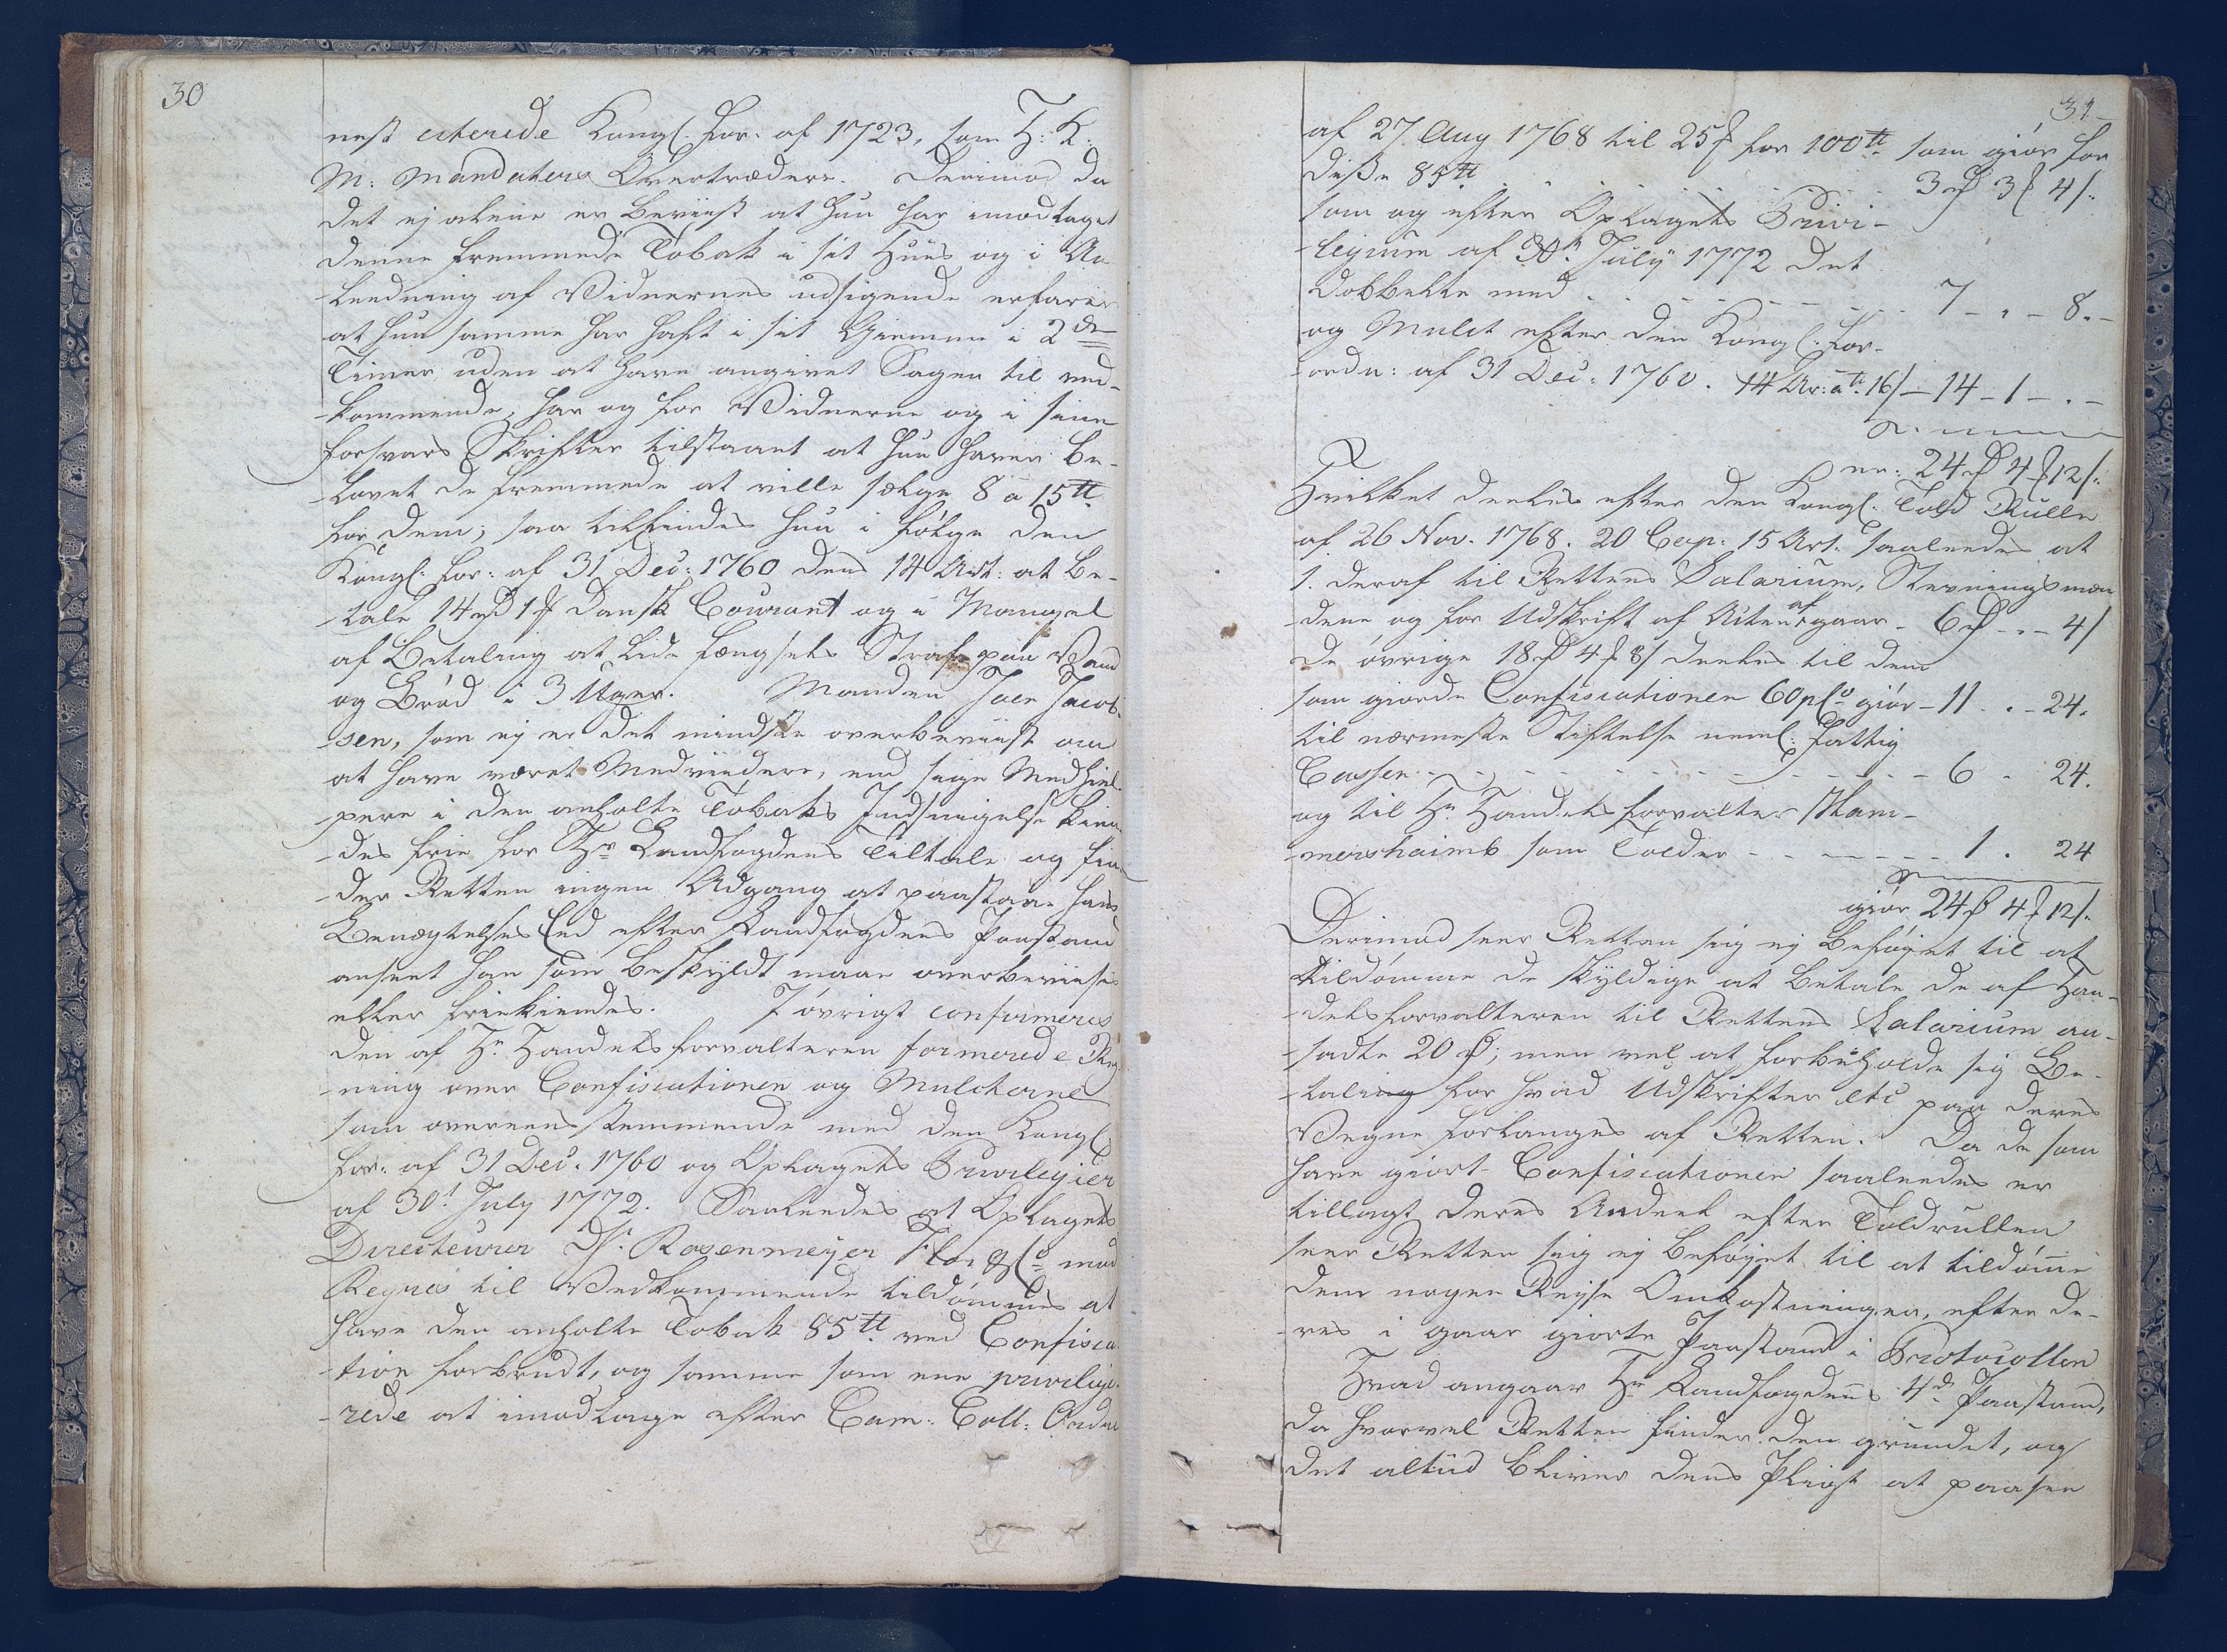 30
nest citerede Kongl. For: af 1723, som H: K:
M: Mandaters Overtrædere. Derimod da
det ej alene er beviist at hun har imodtaget
denne fremmede Tobak i sit Huus og i An-
-ledning af Vidnernes udsigende erfarer
at hun samme har haft i sit Giemme i 2de
Timer uden at have angivet Sagen til ved-
-kommende, har og for Vidnerne og i sine
forsvars Skrifter tilstaaet at hun haver be-
-lovet de fremmede at ville sælge 8 a 15 ℔
for dem; saa tilfindes hun i følge den
Kongl: For: af 31 Dec: 1760 dens 14 Art: at be-
-tale 14 rd 1 ȝ Dansk Courant og i Mangel
af Betaling at lide fængsels Straf paa Vand
og Brød i 3 Uger. Manden Joen Jacob-
-sen, som ej er det mindste overbeviist om
at have været Medvidere, end sige Medhiel-
-pere i den anholte Tobaks Indsnigelse kien-
-des frie for Hr Landfogdens Tiltale og fin-
-der Retten ingen Adgang at paastaae hans
Benægtelses Eed efter Landfogdens Paastand
anseet han som beskyldt maae overbevises
eller friekiendes. I øvrigt confirmeres
den af Hr Handelsforvalteren formerede Reg-
-ning over Confiscationen og Mulcterne
som overeensstemmende med den Kongl:
For: af 31 Dec: 1760 og Oplagets Privilegier
af 30t July 1772. Saaledes at Oplagets
Directeurer Hr. Rosenmeyer Flor & Co med
Regres til Vedkommende tildømmes at
have den anholte Tobak 85 ℔ ved Confisca-
-tion forbrudt, og samme som ene privilegi-
-rede at imodtage efter Cam: Coll: Ordre
31
af 27 Aug 1768 til 25 ȝ for 100 ℔ som giør for
diße 85 ℔ . . . . . 3 rd 3 ȝ 4 s.
som og efter Oplagets Privi-
-legium af 30t July 1772 det
dobbelte med . . - - - - - 7 - . - 8. -
og Mulct efter den Kongl: For-
-ordn: af 31 Dec: 1760. 14 Ar: a ℔ 16 s - 14 - 1 - . -
er: 24 rd 4 ȝ 12 s.
Hvilket deeles efter den Kongl: Told Rulle
af 26 Nov. 1768. 20 Cap: 15 Art. saaledes at
1. deraf til Rettens Salarium, Stevningsmæn
-dene og for Udskrift af Acten afgaar - 6 rd - . - 4 s
de øvrige 18 rd 4 ȝ 8 s deeles til dem
som giorde Confiscationen 60 pCo giør - 11 . - 24.
til nærmeste Stiftelse neml: Fattig
Cassen - - - - - - - - - - 6 - 24.
og til Hr Handelsforvalter Ham-
-mershaimb som Tolder - - - - - 1. 24
giør 24 rd 4 ȝ 12 s.
Derimod seer Retten sig ej beføjet til at
tildømme de skyldige at betale de af Han-
-delsforvalteren til Rettens Salarium an-
-satte 20 rd; men vel at forbeholde sig Be-
-taling for hvad Udskrifter etc paa deres
Vegne forlanges af Retten. Da de som
have giort Confiscationen saaledes er
tillagt deres Andeel efter Toldrullen
seer Retten sig ej beføjet til at tildøme
dem nogen Rejse Omkostninger, efter de-
-res i gaar giorte Paastand i Protocollen
Hvad angaar Hr Landfogdens 4de Paastand,
da hvorvel Retten finder den grundet, og
det altiid bliver dens Pligt at paasee